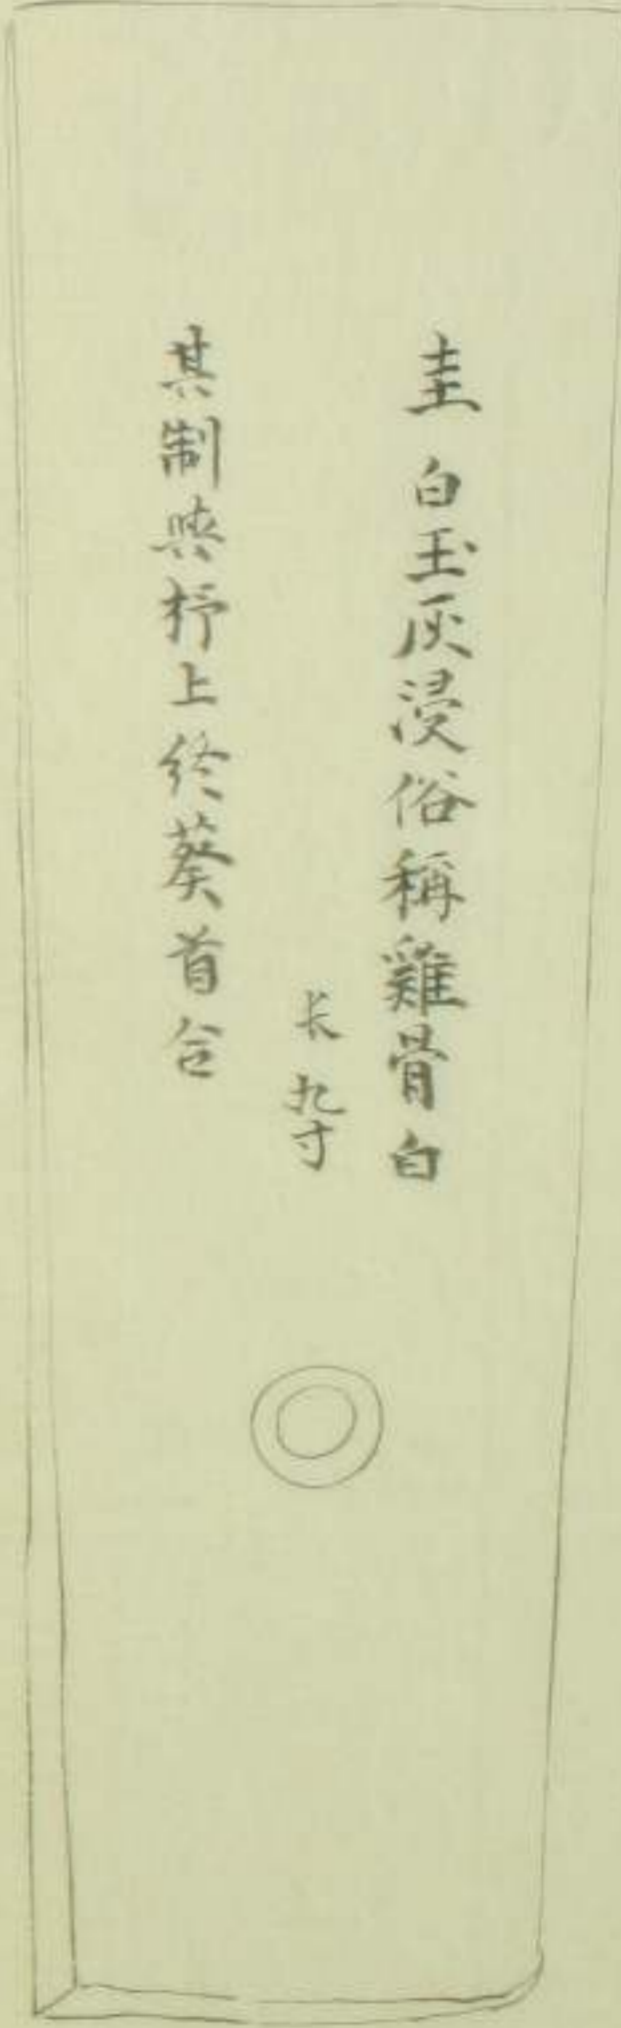 圭 白玉灰浸俗稱雞骨白
长九寸
其制與杼上终葵首合